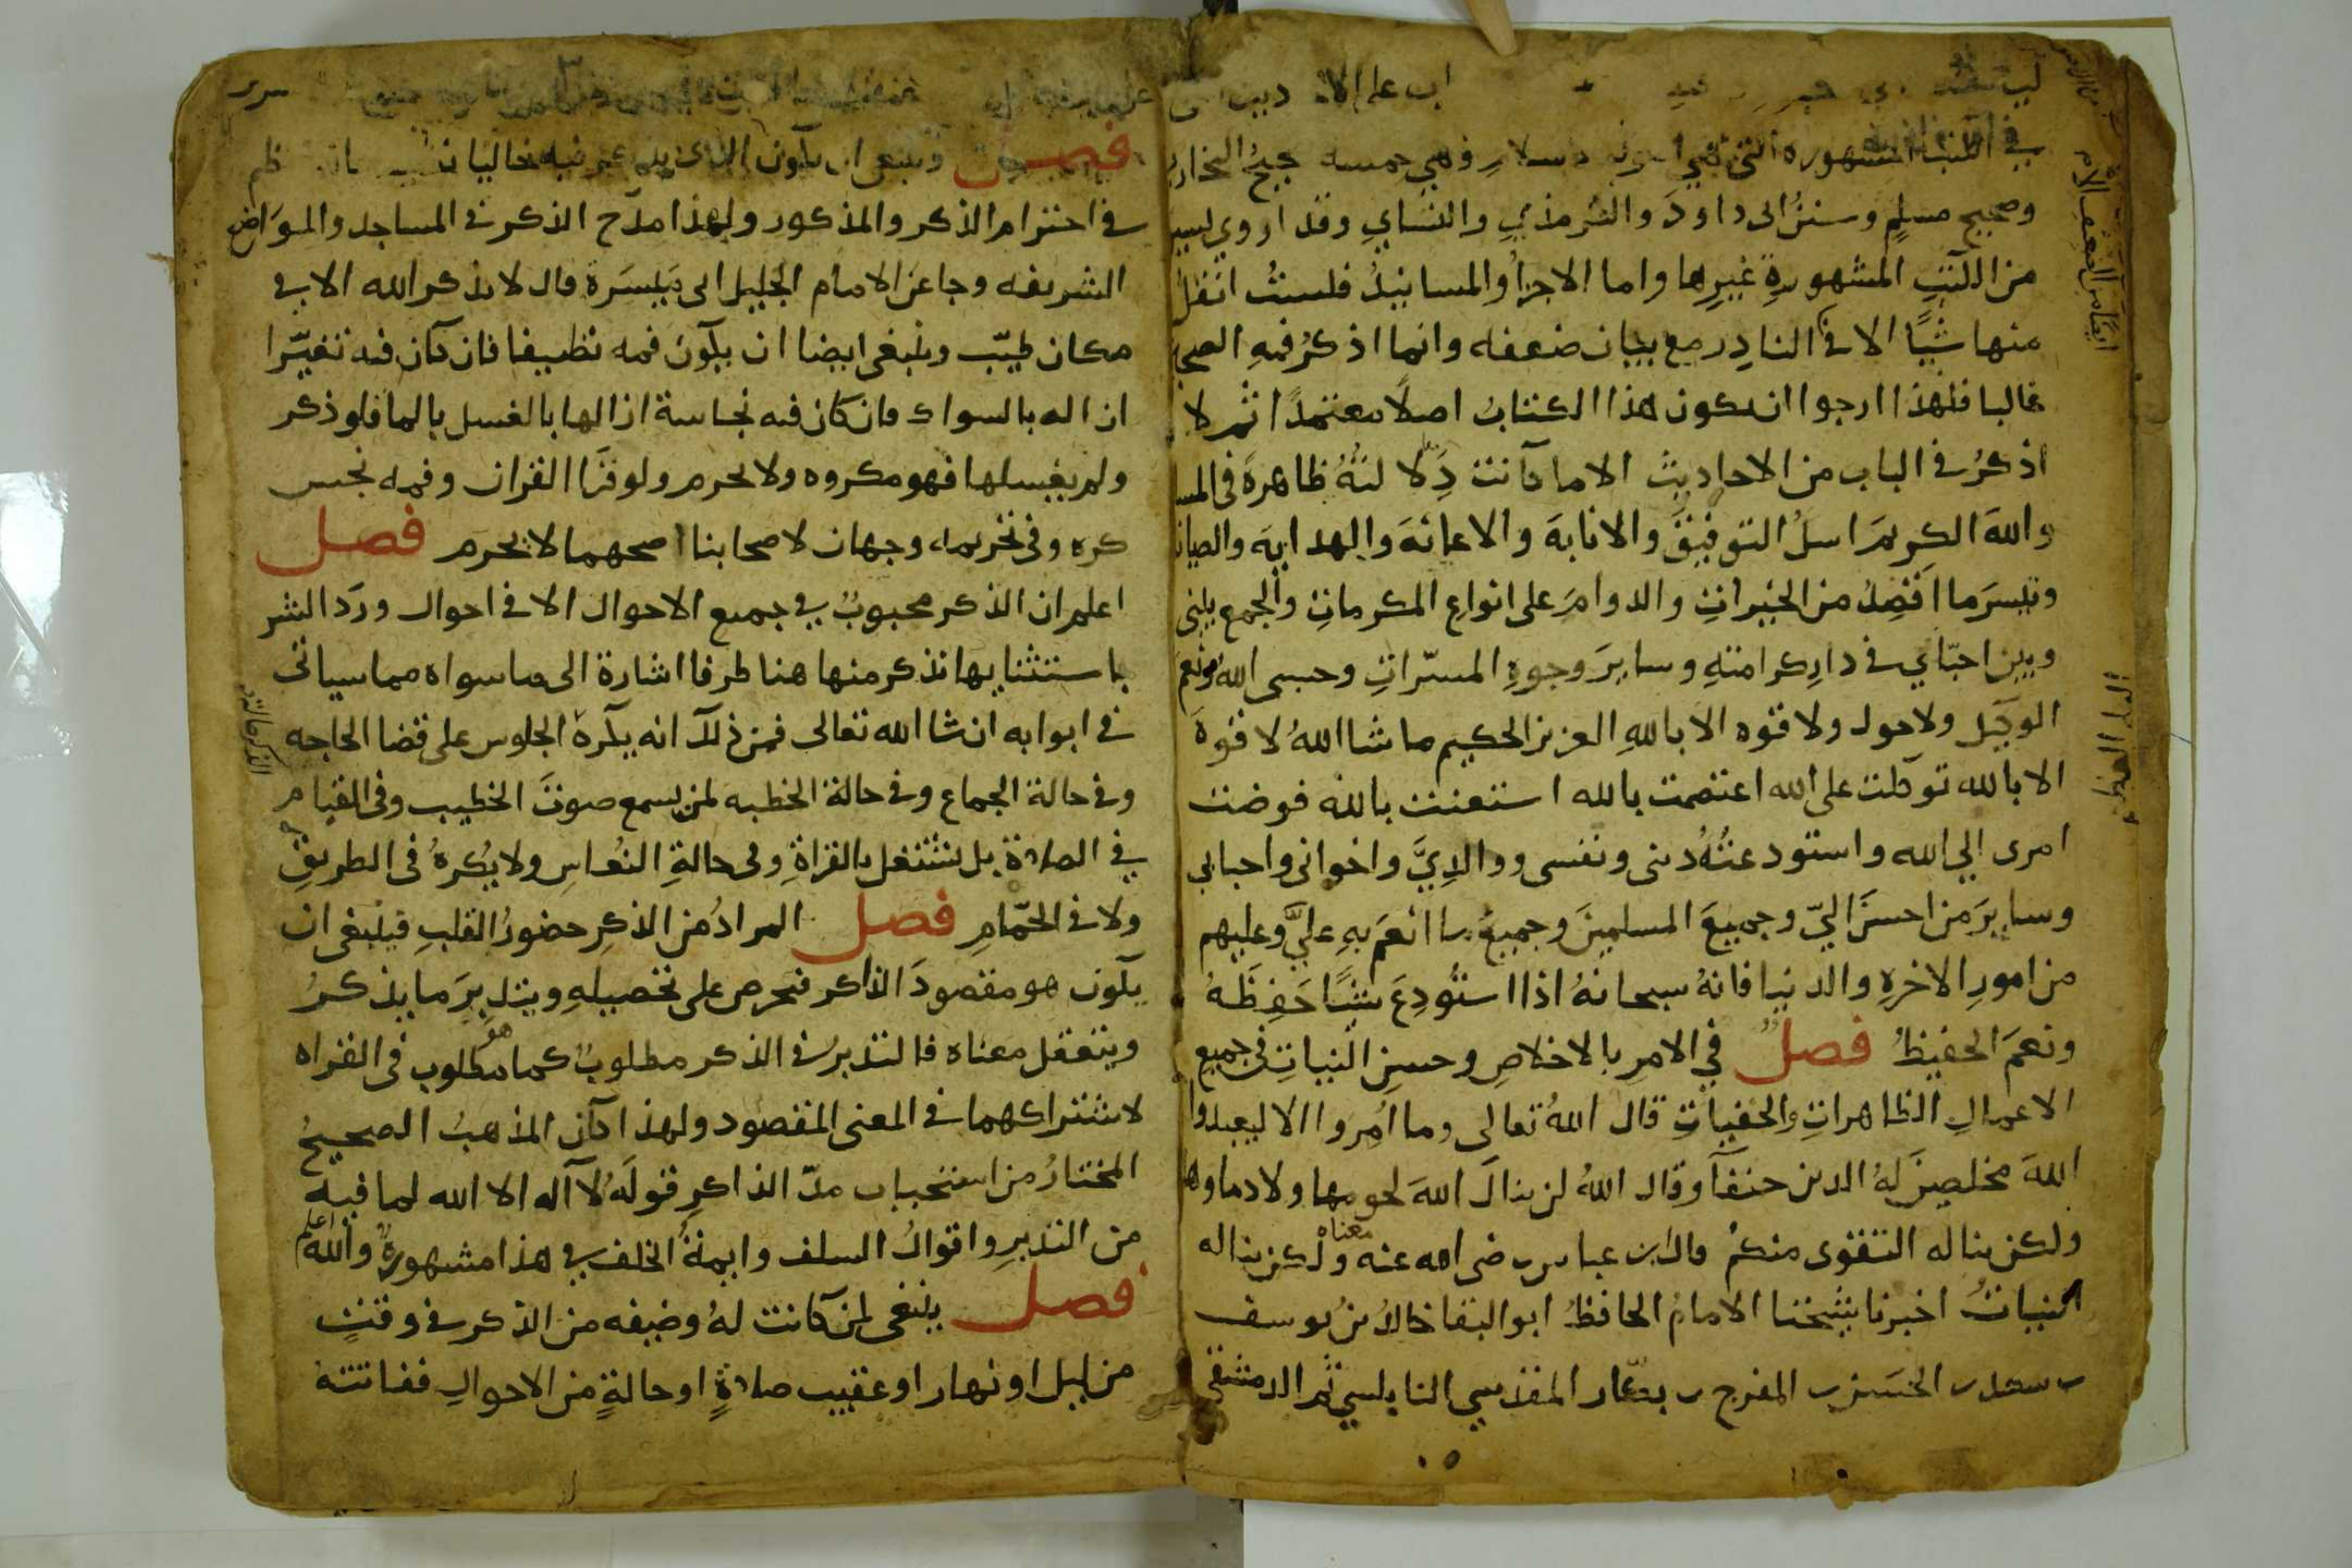 في الكتب المشهوره التي هي اصول الاسلام وهي خمسه صحيح البخاري
وصحيح مسلمٍ وسننُ ابى داودَ والترمذيِ والنسايِ وقد اروي يسير
من الكتبِ المشهورةِ غيرِها واما الاجزأُ والمسانيدُ فلستُ انقلُ
منها شيًا الا في النادِر مع بيان ضعفه وانما اذكرُ فيهِ الصحيح
غالبا فلهذا ارجوا ان يكون هذا الكتابُ اصلاً معتمدًا ثم لا
اذكرُ في الباب من الاحاديث الا ما كانت دِلالتهُ ظاهرةً في المسـ
والله الكريمَ اسلُ التوفيقَ والانابةَ والاعانةَ والهدايةَ والصيانـ
وتيسرَ ما اقصِدُ من الخيراتِ والدوامَ على انواعِ المكرماتِ والجمع بيني
وبين احبّاي في دارِ كرامتهِ وسايرَ وجوهِ المسرّاتِ وحسبى اللهُ ونعم
الوكيل ولا حول ولا قوه الا باللهِ العزيز الحكيم ما شا اللهُ لا قوةَ
الا بالله توكلت على الله اعتصمت بالله استعنت بالله فوضت
امرى الي الله واستودعتُهُ دينى ونفسى ووالدِيَّ واخوانى واحبابي
وسايرَ من احسنَ اليّ وجميعَ المسلمينَ وجميعَ ما انعَم بهِ عليَّ وعليهم
من امورِ الاخرهِ والدنيا فانهُ سبحانهُ اذا استُودِعَ شيًا حَفِظَهُ
ونعمَ الحفيظُ فصلٌ في الامرِ بالاخلاصِ وحسنِ النياتِ في جميع
الاعمالِ الظاهراتِ والخفياتِ قال اللهُ تعالى وما اُمِروا الا ليعبدوا
اللهَ مخلصينَ لهُ الدين حنفآ وقال اللهُ لن ينالَ اللهَ لحومها ولا دماوها
ولكن يناله التقوى منكمُ قال ابن عباس رضى الله عنه معناه ولكن يناله
النياتُ اخبرنا شيخنا الامامُ الحافظُ ابو البقا خالدُ بنُ يوسف
بن سعد بن الحسن بن المفرج بن بكّار المقدسي النابلسي ثم الدمشقي
فصل وينبغى ان يكون الذى يذكر فيه خاليا
في احترام الذكر والمذكور ولهذا مدح الذكر في المساجد والمواضع
الشريفه وجا عن الامام الجليل ابى مَيْسَرة قال لا يذكر الله الا في
مكان طيّب وينبغى ايضا ان يكون فمه نظيفا فان كان فيه تغيّرا
ازاله بالسواك وان كان فيه نجاسة ازالها بالغسل بالما فلو ذكر
ولم يغسلها فهو مكروه ولا يحرم ولو قرا القران وفمه نجس
كره وفى تحريمه وجهان لاصحابنا اصحهما لا يحرم فصل
اعلم ان الذكر محبوبٌ في جميع الاحوال الا في احوال وردَ الشر
باستثنايها نذكر منها هنا طرفا اشارة الى ما سواه مما سياتى
في ابوابه ان شا الله تعالى فمن ذلك انه يكره الجلوس على قضا الحاجه
وفي حالة الجماع وفي حالة الخطبه لمن يسمع صوتَ الخطيب وفى القيام
في الصلاة بل يشتغل بالقراةِ وفى حالةِ النُعاسِ ولا يُكرهُ فى الطريقِ
ولا في الحمّامِ فصل المرادُ من الذكرِ حضورُ القلبِ فينبغى ان
يكون هو مقصودَ الذاكر فيحرص على تحصيلهِ ويتدبرَ ما يذكرُ
ويتعقل معناه فالتدبرُ في الذكر مطلوبٌ كما هو مطلوب في القراه
لاشتراكهما في المعنى المقصود ولهذا كان المذهبُ الصحيحُ
المختارُ من استحباب مدّ الذاكرِ قولَهُ لآ اله الا الله لما فيه
من التدبرِ واقوالُ السلف وايمةُ الخلف في هذا مشهورةٌ والله اعلم
فصل ينبغى لمن كانت لهُ وضيفه من الذكر في وقتٍ
من ليل او نهار او عقيب صلاةٍ او حالةٍ من الاحوالِ ففاتتهُ